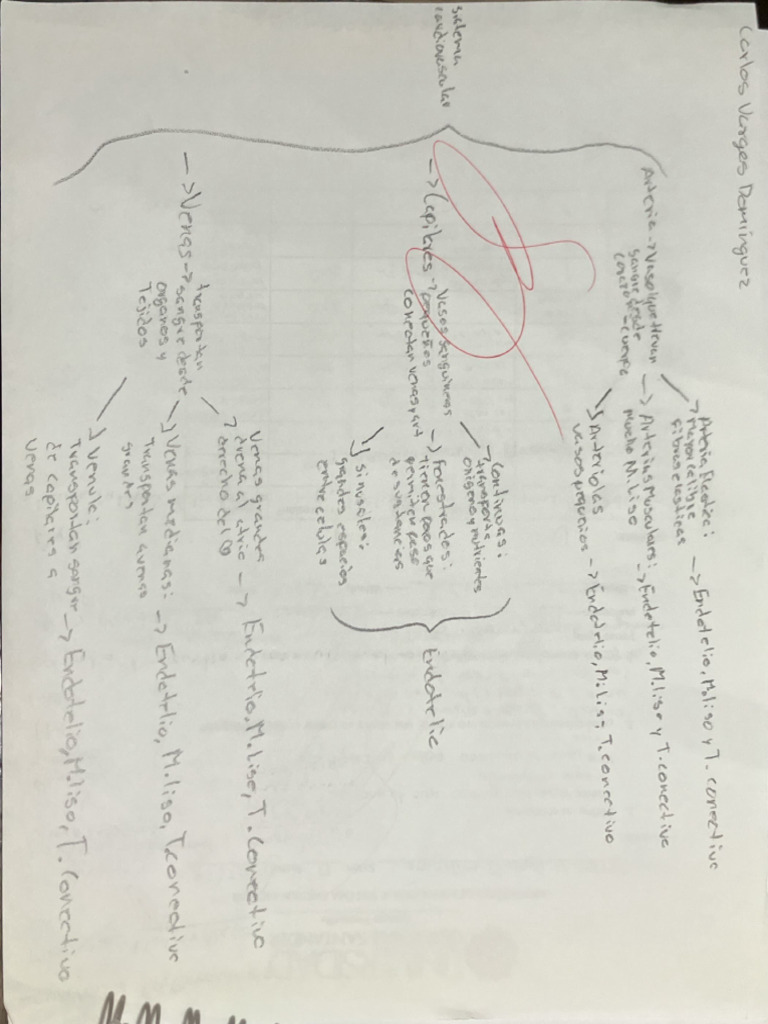 Carlos Vargas Domínguez
sistema
cardiovascular
Arteria -> Vasos que llevan
sangre desde
corazón
-cuerpo
-> Arteria Elástica:
mayor calibre
fibras elasticas
-> Endotelio, M.liso y T. conectivo
-> Arterias Musculares:
Mucho M. Liso
-> Endotelio, M.liso y T.conectivo
-> Arteriolas
vasos pequeños
-> Endotelio, M.liso, T.conectivo
-> Capilares ->
Vasos sanguineos
pequeños
conectan venas y art
-> Continuos:
transporte
oxigeno y nutrientes
-> Fenestrados:
tienen poros que
permiten paso
de sustancias
-> sinusoides:
grandes espacios
entre celulas
Endotelio
-> Venas ->
transportan
sangre desde
organos y
Tejidos
-> Venas grandes
drena al atrio
derecho del
-> Endotelio, M.liso, T.Conectivo
-> Venas medianas:
Transportan a venas
grandes
-> Endotelio, M.liso, T.conectivo
-> Venula:
Transportan sangre
de capilares a
venas
-> Endotelio, M.liso, T.Conectivo